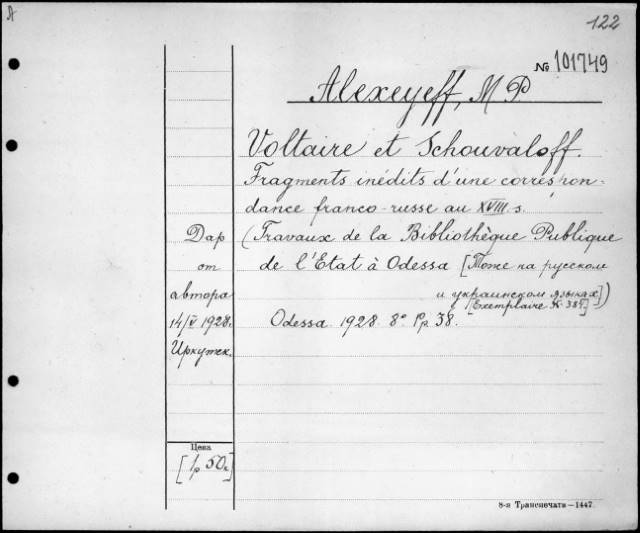 A
122
№ 101749
Alexeyeff, M P.
Voltaire et Schouvaloff.
Fragments inédits d'une correspon-
dance franco-russe au XVIII s.
(Travaux de la Bibliothèque Publique
de l'Etat à Odessa [Тоже на русском
и украинском языках])
[Exemplaire № 385]
Odessa. 1928. 8° Pp. 38.
Дар
от
автора
14/V 1928.
Иркутск.
Цена
[1р 50к]
8-я Транспечати—1447.